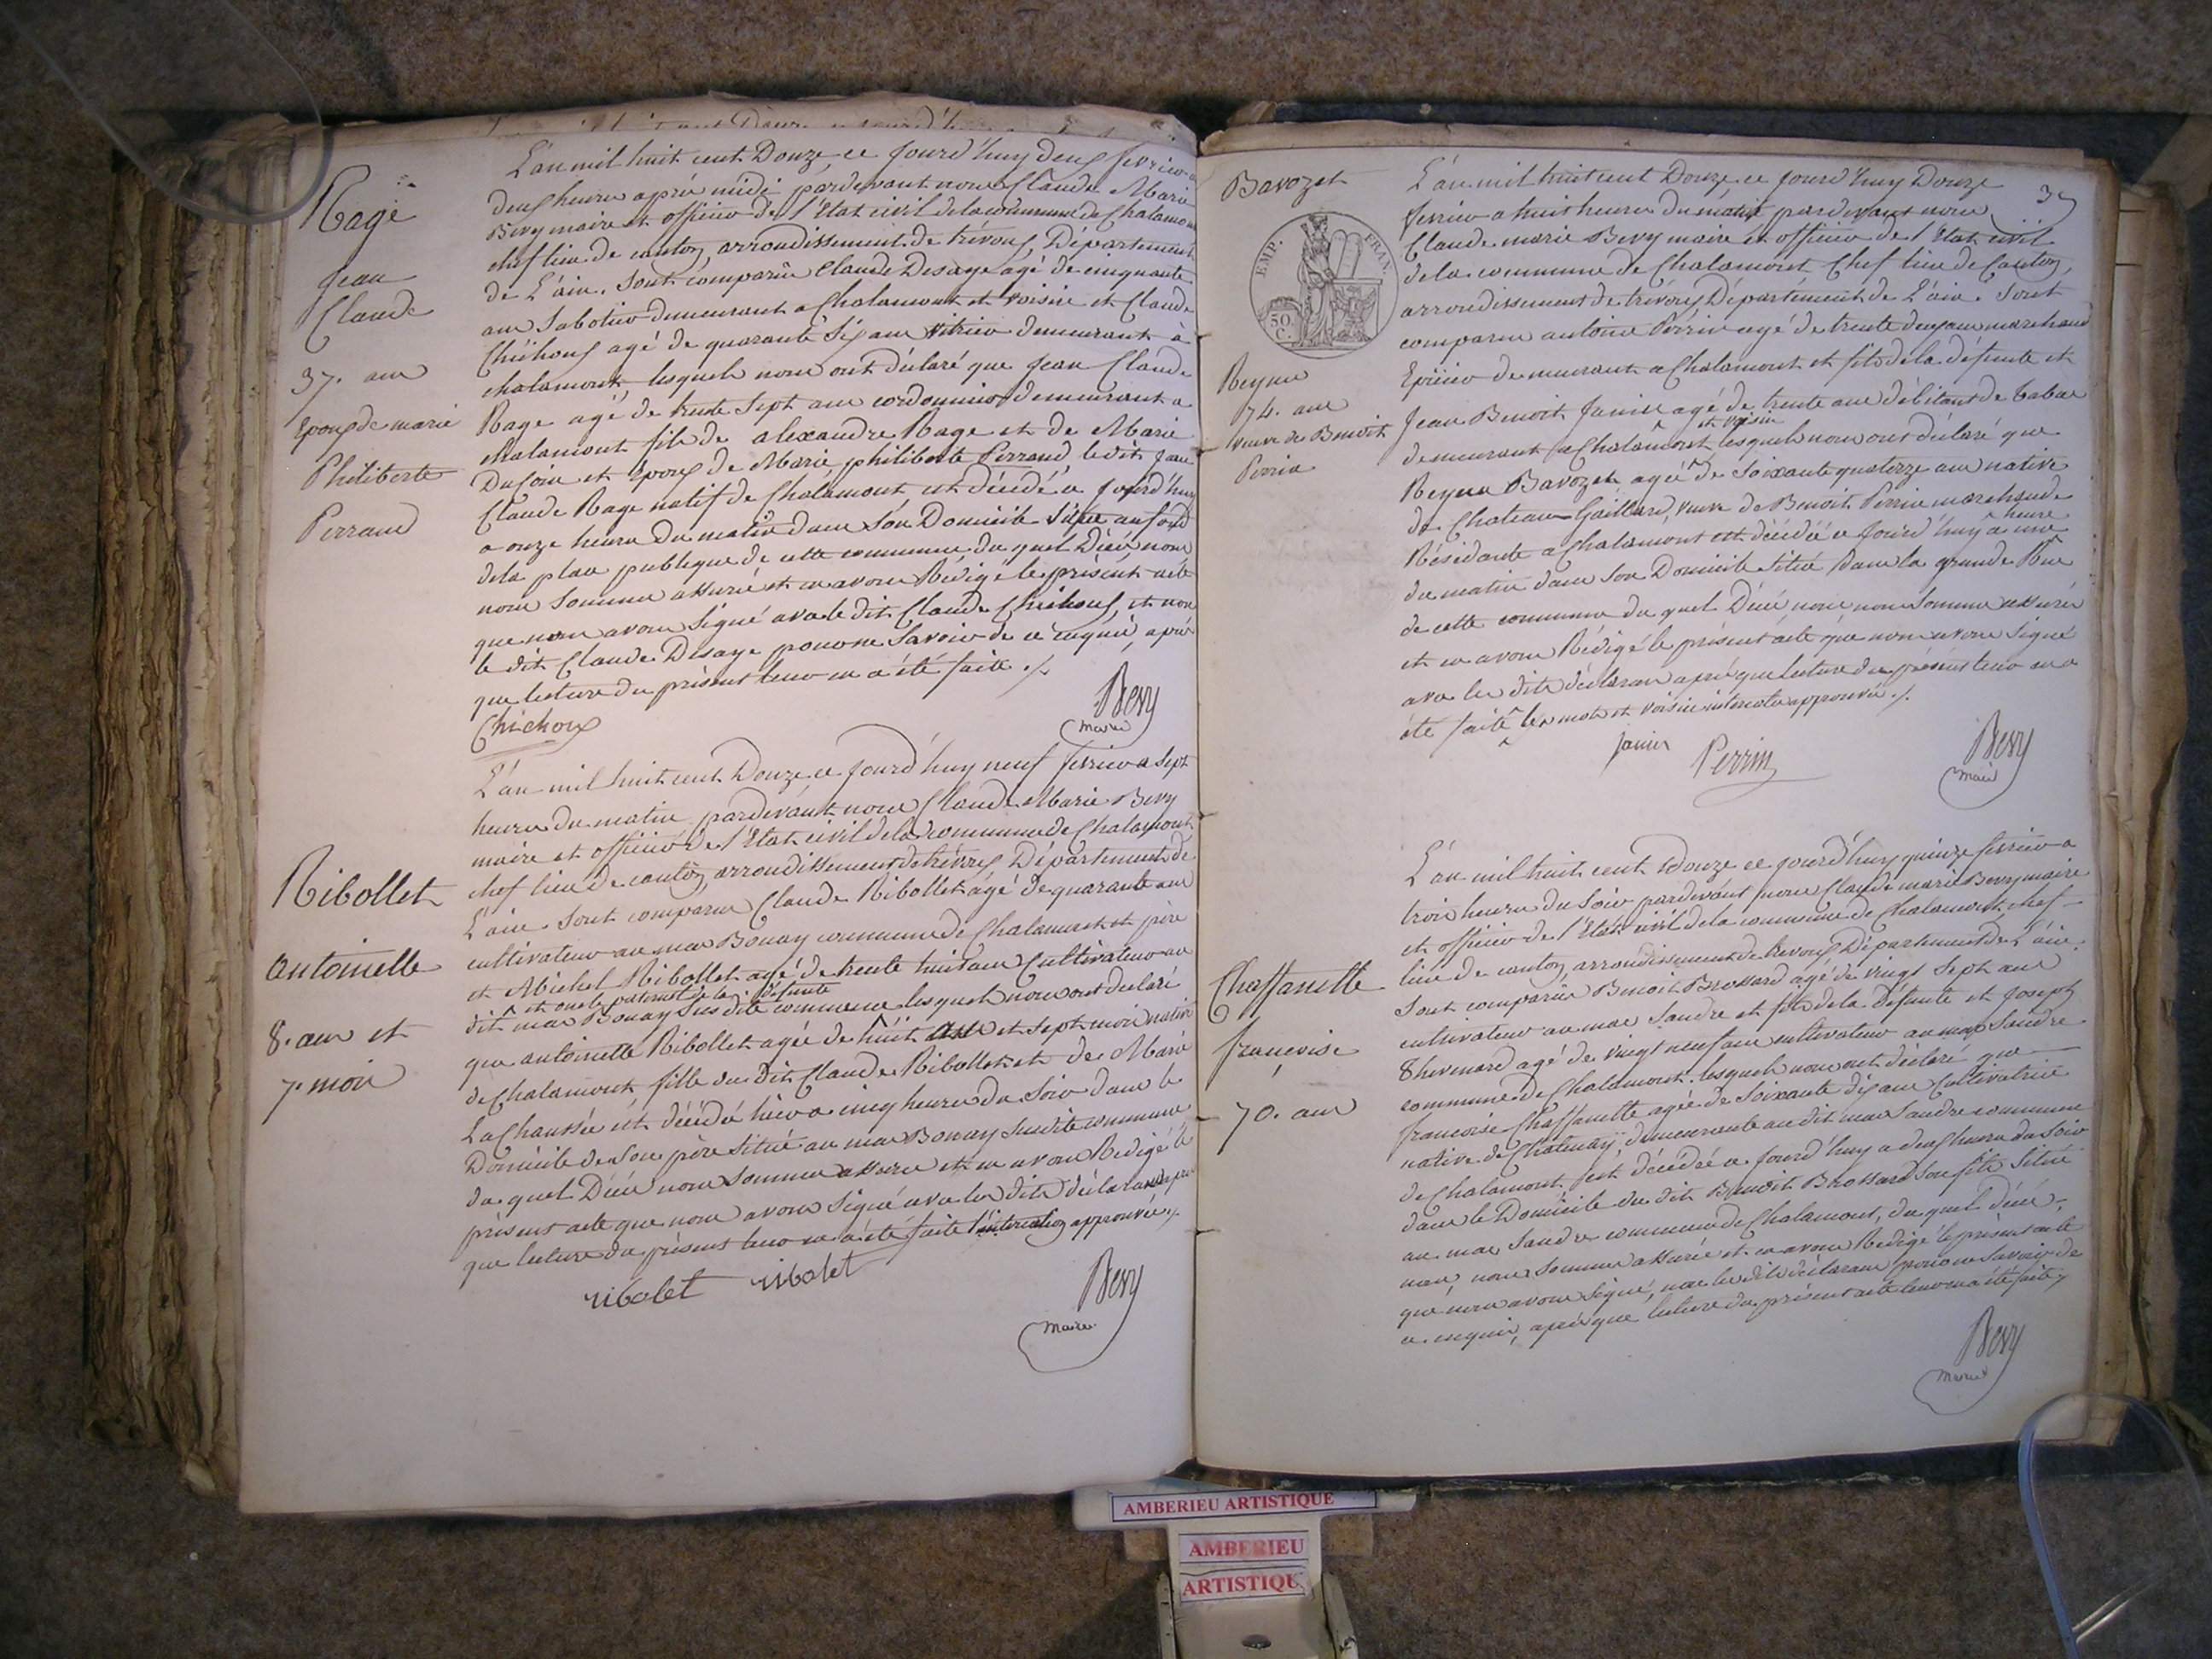 Rage
Jean
Claude
37. ans
Epoux de marie
Philiberte
Perraud
L'an mil huit cent Douze ce jourd'huy deux fevrier a
deux heures aprés midi pardevant nous Claude Marie
Bevy maire et officier de l'Etat civil de la commune de Chalamont
chef lieu de canton, arrondissement de trévoux, Département
de L'ain. Sont comparûs Claude Desaye agé de cinquante
ans Sabotier demeurant a Chalamont et voisin et Claude
Chichoux agé de quarante Six ans vitrier demeurant à
chalamont, lesquels nous ont déclaré que Jean Claude
Rage agé de trente Sept ans cordonnier demeurant a
chalamont fils de alexandre Rage et de Marie
et Epoux de Marie philiberte Perraud, le dit Jean
Claude Rage natif de Chalamont est décédé ce jourd'huy
a onze heures du matin dans Son Domicile Situé au fond
de la place publique de cette commune, du quel Décés nous
nous Sommes assurés et en avons Rédigé le présent acte
que nous avons Signé avec le dit Claude Chichoux, et non
le dit Claude Desaye pour ne Savoir de ce enquis, aprés
que lecture du présent leur en a été faite ./.
Chichoux
Bevy
Maire
Ribollet
antoinette
8. ans et
7. mois
L'an mil huit cent Douze ce jourd'huy neuf fevrier a Sept
heures du matin pardevant nous Claude Marie Bevy
maire et officier de l'Etat civil de la commune de Chalamont
chef lieu de canton, arrondissement de trévoux Département de
L'ain Sont comparus Claude Ribollet agé de quarante ans
cultivateur au mas Bonay commune de Chalamont et pére
et Michel Ribollet agé de trente huit ans Cultivateur au
et oncle paternel de la défunte
dit mas Bonay Sus dite commune lesquels nous ont déclaré
que antoinette Ribollet agée de huit ans et Sept mois native
de Chalamont, fille du dit Claude Ribollet et de Marie
La Chaussée est décédé hier a cinq heures du Soir dans le
Domicile de Son pére Situé au mas Bonay Susdite commune
du quel Décés nous Sommes assurés et en avons Redigé le
présent acte que nous avons Signé avec les dits déclarans aprés
que lecture du présent leur en a été faite approuvée ./.
ribolet ribolet
Bevy
Maire
Bavozet
EMP. FRAN.
50. C.
Reyne
74. ans
veuve de Benoit
Perrin
37
L'an mil huit cent Douze ce jourd'huy Douze
fevrier a huit heures du matin pardevant nous
Claude marie Bevy maire et officier de l'Etat civil
de la commune de Chalamont Chef lieu de Canton,
arrondissement de trévoux Département de L'ain. Sont
comparus antoine Perrin agé de trente deux ans marchand
Epicier demeurant a Chalamont et fils de la défunte et
Jean Benoit Janier agé de trente ans débitant de tabac
et voisin
demeurant a Chalamont lesquels nous ont déclaré que
Reyne Bavozet agée de Soixante quatorze ans native
de Chateau Gaillard, veuve de Benoit Perrin marchande
heure
Résidante a Chalamont est décédée ce jourd'huy a une
du matin dans Son Domicile Situé Dans la grande Rue
de cette commune du quel Décés nous nous Sommes assurés
et en avons Rédigé le présent acte que nous avons Signé
avec les dits déclarans aprés que lecture du présent leur en a
été faite les mots et voisin intercalés approuvés ./.
Janier Perrin
Bevy
Maire
Chaffanette
françoise
70. ans
L'an mil huit cent Douze ce jourd'huy quinze fevrier a
trois heures du Soir pardevant nous Claude marie Bevy maire
et officier de l'Etat civil de la commune de Chalamont, chef
lieu de canton arrondissement de trevoux, Département de L'ain.
Sont comparûs Benoit Brossard agé de vingt Sept ans
cultivateur au mas Sandre et fils de la defunte et Joseph
Thevenard agé de vingt neuf ans cultivateur au mas Sandre
commune de Chalamont. lesquels nous ont déclaré que
françoise Chaffanette agée de Soixante dix ans Cultivatrice
native de Chatenay, demeurante au dit mas Sandre commune
de Chalamont, est décédée ce jourd'huy a deux heures du Soir
dans le Domicile du dit Benoit Brossard Son fils Situé
au mas Sandre commune de Chalamont, du quel décés
nous nous Sommes assurés et en avons Redigé le présent acte
que nous avons Signé, non les dits déclarans pour ne Savoir de
ce enquis, aprés que lecture du présent acte leur en a été faite ./.
Bevy
Maire
AMBERIEU ARTISTIQUE
AMBERIEU
ARTISTIQU